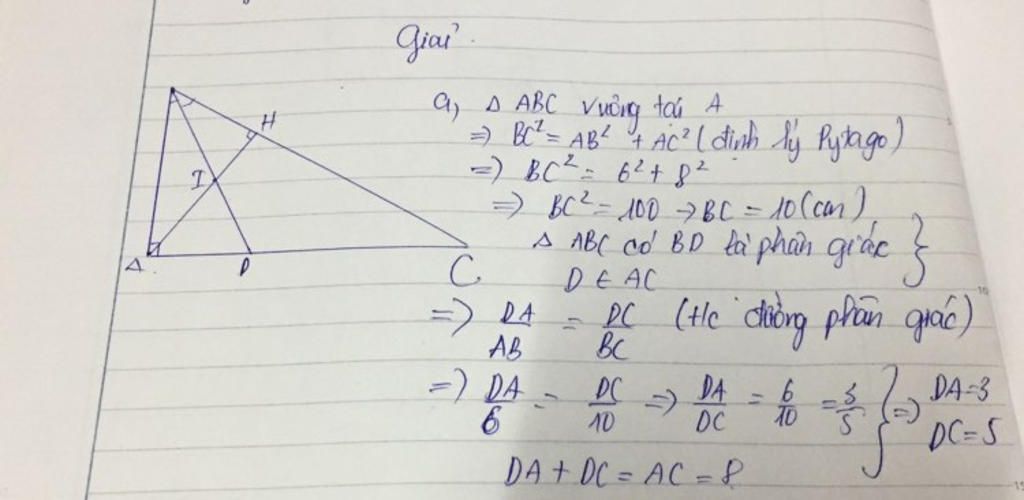 Giải.
H
I
A
D
C
a, Δ ABC vuông tại A
=> BC² = AB² + AC² (định lý Pytago)
=> BC² = 6² + 8²
=> BC² = 100 → BC = 10 (cm)
Δ ABC có BD là phân giác }
D ∈ AC
=> DA/AB = DC/BC (t/c đường phân giác)
=> DA/6 = DC/10 => DA/DC = 6/10 = 3/5 } => DA=3
DC=5
DA + DC = AC = 8